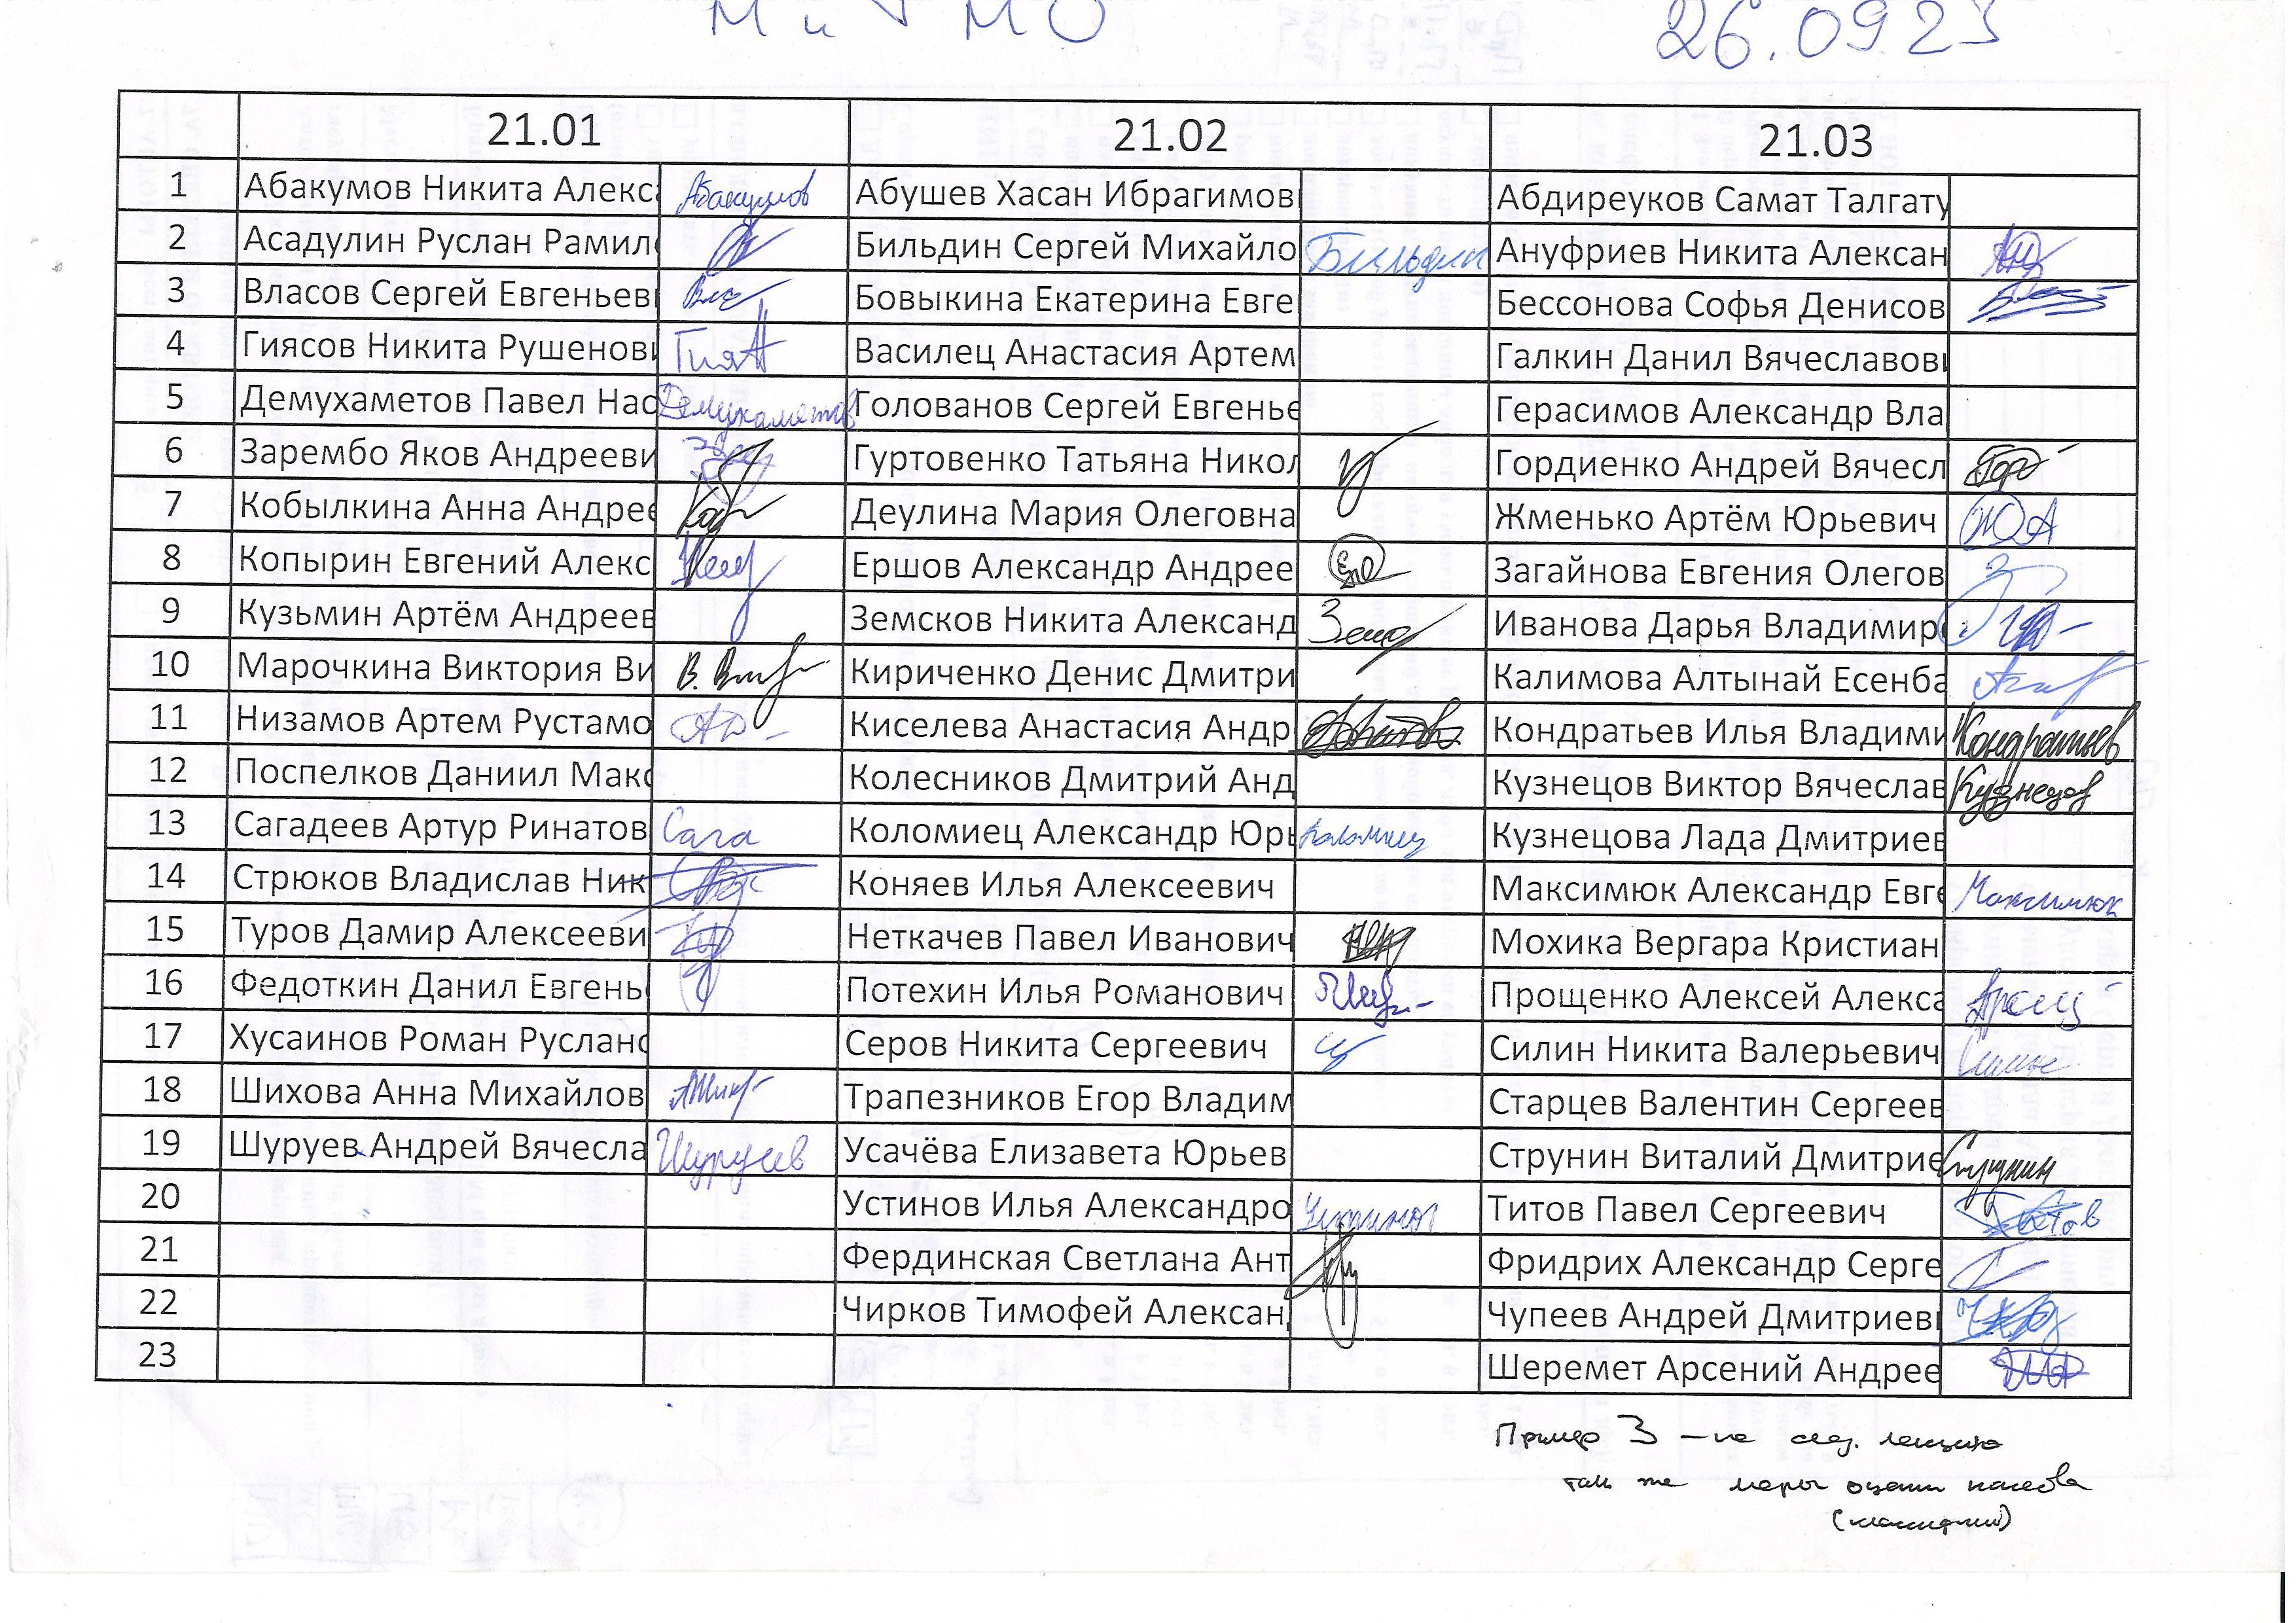 26.0923
21.01 21.02 21.03
1 Абакумов Никита Алекс Абакумов Абушев Хасан Ибрагимов Абдиреуков Самат Талгату
2 Асадулин Руслан Рамил Бильдин Сергей Михайло Бильдин Ануфриев Никита Алексан
3 Власов Сергей Евгеньев Влс Бовыкина Екатерина Евге Бессонова Софья Денисов
4 Гиясов Никита Рушенов Василец Анастасия Артем Галкин Данил Вячеславов
5 Демухаметов Павел Нас Демухаметов Голованов Сергей Евгенье Герасимов Александр Вла
6 Зарембо Яков Андрееви Гуртовенко Татьяна Никол Гордиенко Андрей Вячесл
7 Кобылкина Анна Андрее Деулина Мария Олеговна Жменько Артём Юрьевич
8 Копырин Евгений Алекс Ершов Александр Андрее Загайнова Евгения Олегов
9 Кузьмин Артём Андреев Земсков Никита Александ Иванова Дарья Владимир
10 Марочкина Виктория Ви Кириченко Денис Дмитри Калимова Алтынай Есенба
11 Низамов Артем Рустамо Киселева Анастасия Андр Кондратьев Илья Владими Кондратьев
12 Поспелков Даниил Мак Колесников Дмитрий Анд Кузнецов Виктор Вячеслав Кузнецов
13 Сагадеев Артур Ринатов Сага Коломиец Александр Юр Коломиец Кузнецова Лада Дмитриев
14 Стрюков Владислав Ник Коняев Илья Алексеевич Максимюк Александр Евг Максимюк
15 Туров Дамир Алексееви Неткачев Павел Иванович Мохика Вергара Кристиан
16 Федоткин Данил Евгень Потехин Илья Романович Прощенко Алексей Алекса
17 Хусаинов Роман Руслан Серов Никита Сергеевич Силин Никита Валерьевич Силин
18 Шихова Анна Михайлов Трапезников Егор Владим Старцев Валентин Сергеев
19 Шуруев Андрей Вячесла Шуруев Усачёва Елизавета Юрьев Струнин Виталий Дмитрие Струнин
20 Устинов Илья Александро Устинов Титов Павел Сергеевич Титов
21 Фердинская Светлана Ант Фридрих Александр Серге
22 Чирков Тимофей Алексан Чупеев Андрей Дмитриев
23 Шеремет Арсений Андрее
Пример 3 – на след. лекцию
там же меры оценки качества